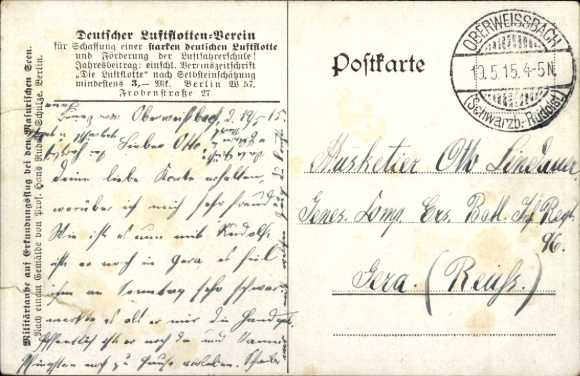 Deutscher Luftflotten-Verein
für Schaffung einer starken deutschen Luftflotte
und Förderung der Luftfahrerschule!
Jahresbeitrag: einschl. Vereinszeitschrift
„Die Luftflotte" nach Selbsteinschätzung
mindestens 3,— Mk. Berlin W 57,
Frobenstraße 27
Postkarte
OBERWEISSBACH
19.5.15.4-5N.
(Schwarzb.-Rudolst.)
Militärtaube auf Erkundungsflug bei den Masurischen Seen.
Nach einem Gemälde von Prof. Hans Rudolf Schulze, Berlin.
Oberweißbach, d. 19/5 15.
Lieber Otto!
deine liebe Karte erhalten,
worüber ich mich sehr freute.
Wie ist es nun mit Rudolf,
ist er noch in Gera es fiel
ihm am Sonntag sehr schwer
merkte es als er mir die Hand gab
hoffentlich ist er noch da und kann
Pfingsten noch zu Hause verleben.
Musketier Otto Lindauer
Genes. Komp. Ers. Batl. Inf. Regt.
96.
Gera. (Reuß.)